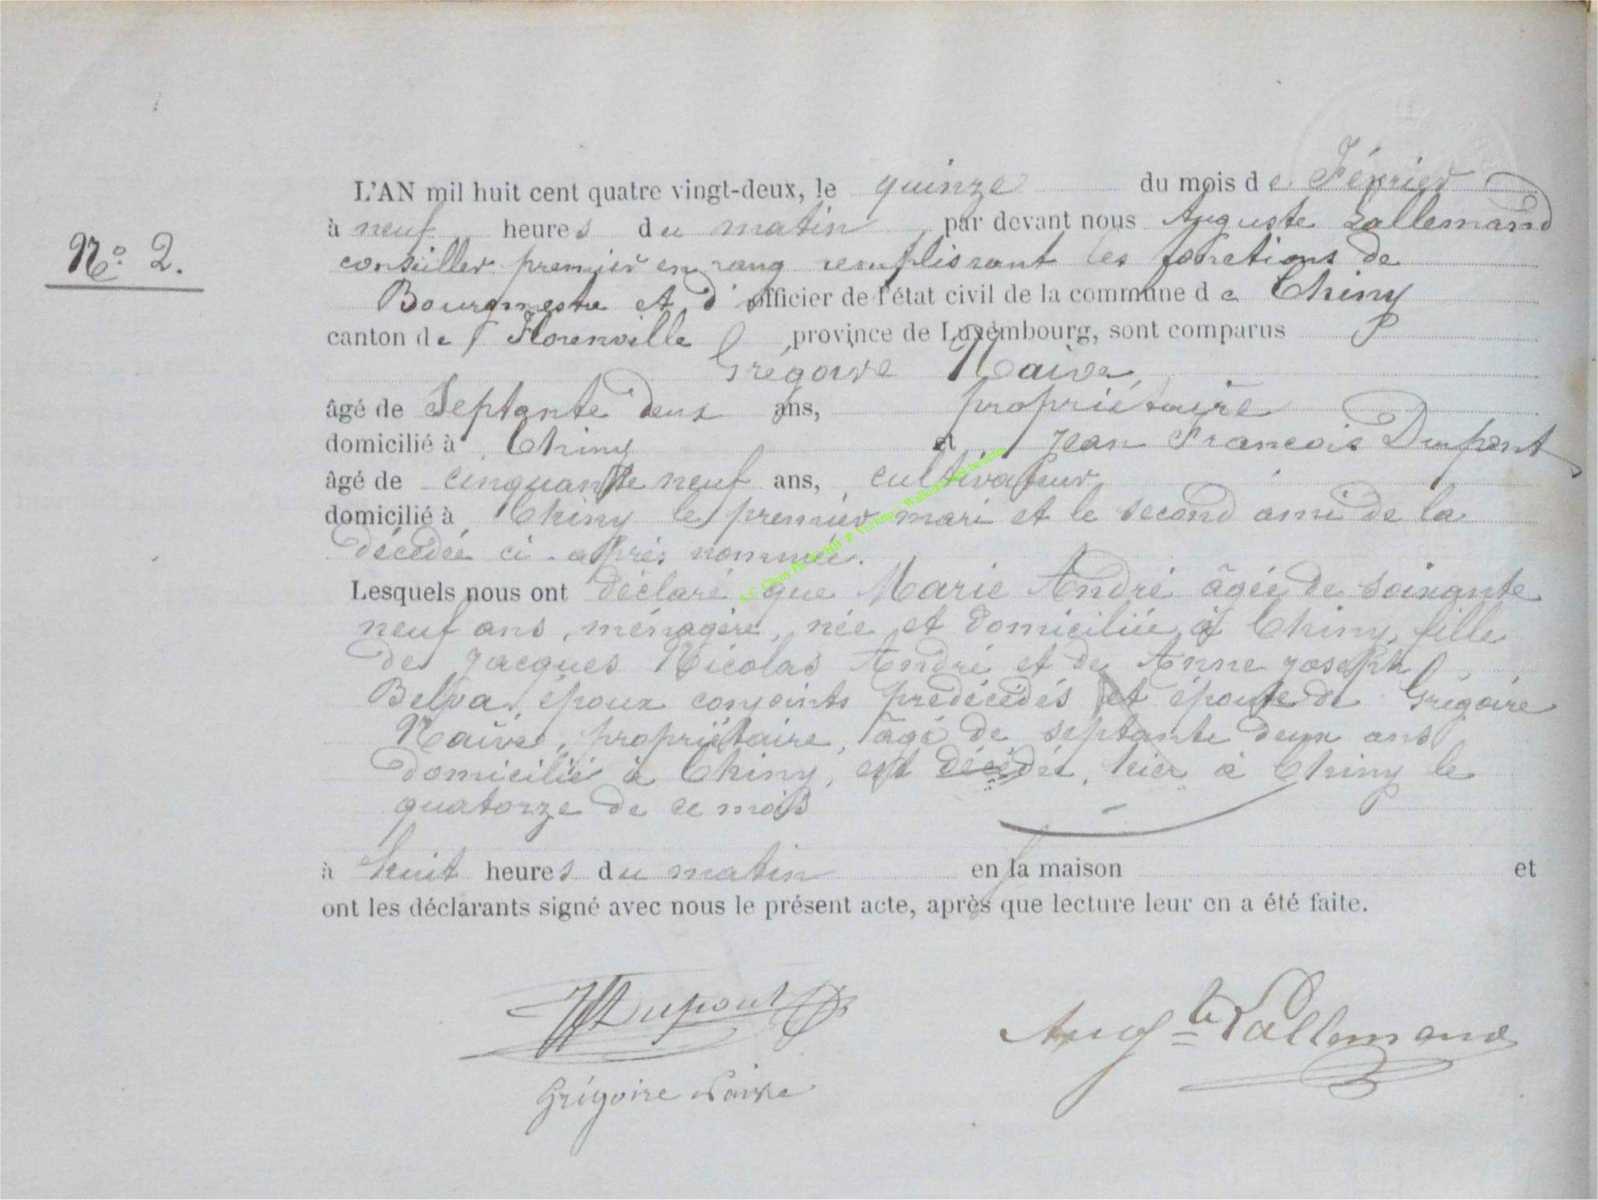 N° 2.
L'AN mil huit cent quatre vingt-deux, le quinze du mois de Février
à neuf heures du matin par devant nous Auguste Lallemand
conseiller premier en rang remplissant les fonctions de
Bourgmestre et d'officier de l'état civil de la commune de Chiny
canton de Florenville province de Luxembourg, sont comparus
Grégoire Naive
âgé de Septante deux ans, propriétaire
domicilié à Chiny et Jean Francois Dupont
âgé de cinquante neuf ans, cultivateur
domicilié à Chiny le premier mari et le second ami de la
décédée ci-après nommée.
Lesquels nous ont déclaré que Marie André âgée de soixante
neuf ans, ménagère, née et domiciliée à Chiny, fille
de Jacques Nicolas André et de Anne Joseph
Belva, époux conjoints prédécédés et épouse de Grégoire
Naive, propriétaire, âgé de septante deux ans
domicilié à Chiny, est décédée, hier à Chiny le
quatorze de ce mois
à huit heures du matin en la maison et
ont les déclarants signé avec nous le présent acte, après que lecture leur en a été faite.
JF Dupont
Aug te Lallemand
Grégoire Naive